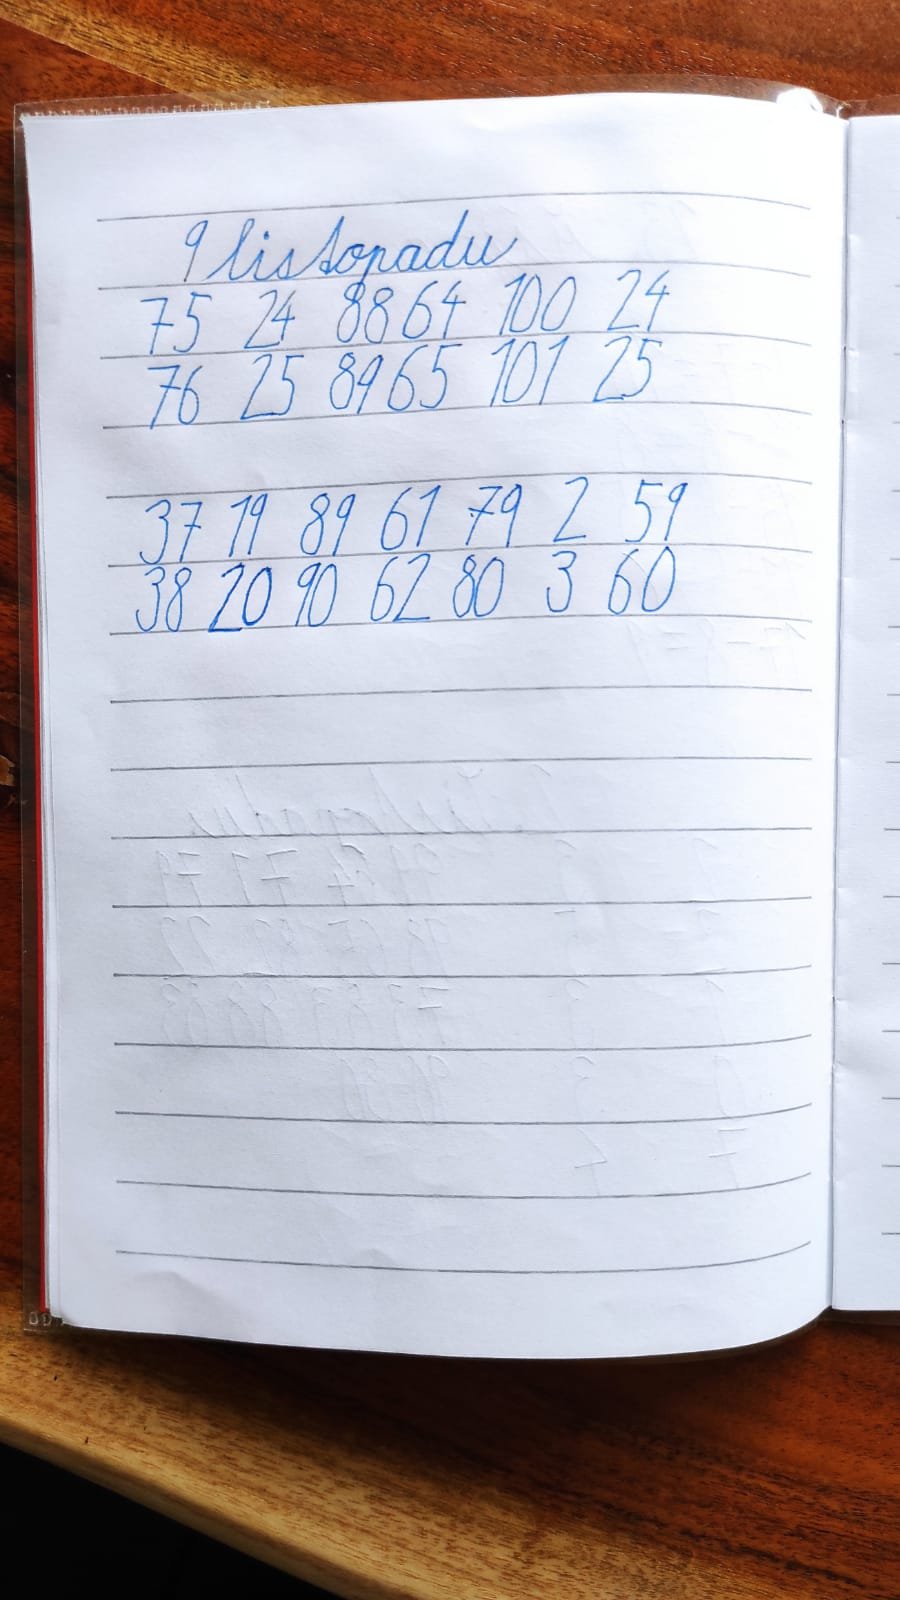 9 listopadu
75 24 88 64 100 24
76 25 89 65 101 25
37 19 89 61 79 2 59
38 20 90 62 80 3 60